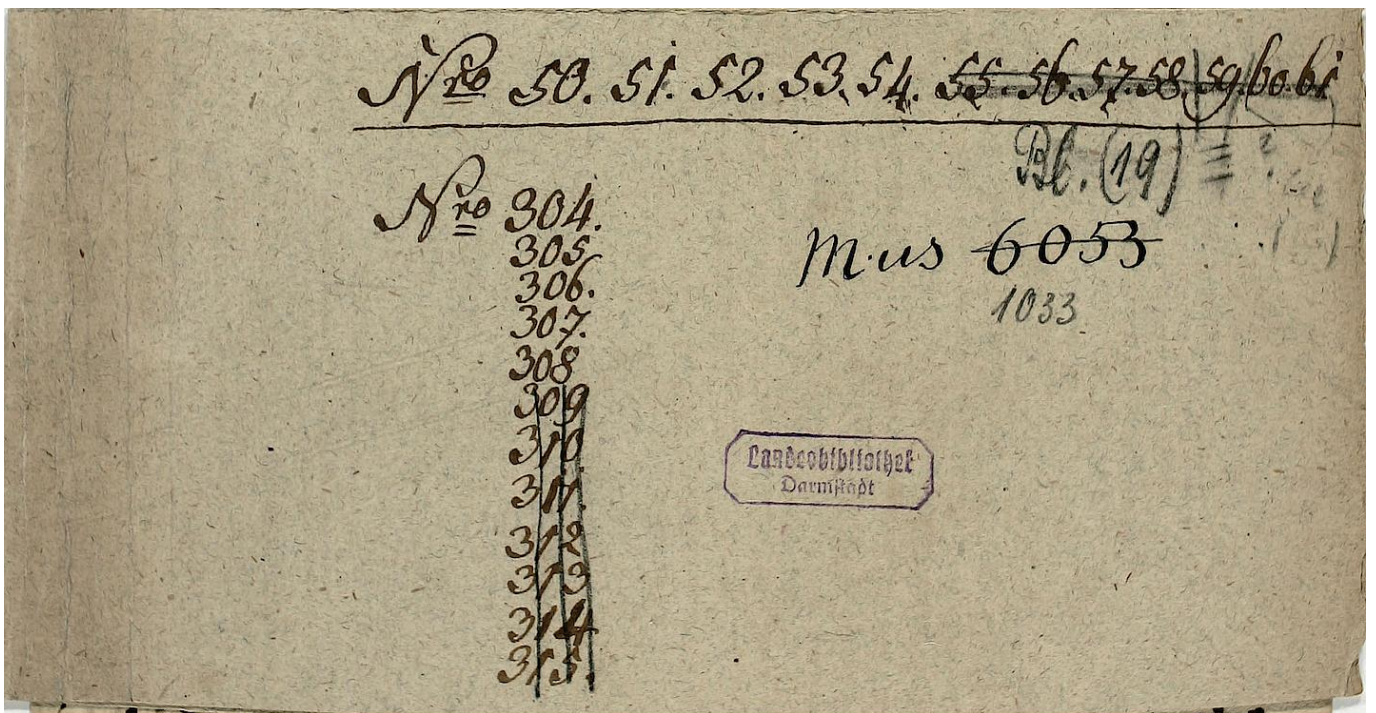 Nro 50. 51. 52. 53. 54. 55. 56. 57. 58. 59. 60. 61
Bl. (19)
Nro 304.
305.
306.
307.
308
309
310
311.
312
313
314
315.
Mus 6053
1033
Landesbibliothek
Darmstadt